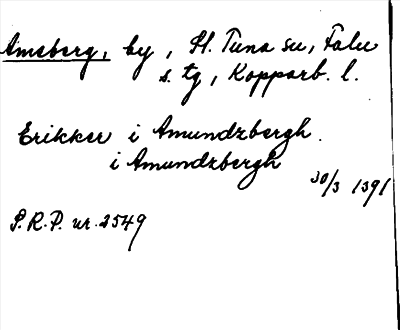 Amsberg, by, St. Tuna sn, Falu
s. tg, Kopparb. l.
Erikker i Amundzbergh.
i Amundzbergh
30/3 1391
S.R.P. nr. 2549